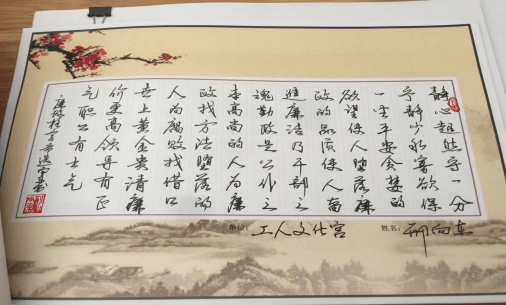 静心超然守一分
宁静少私寡欲保
一生平安贪婪的
欲望使人堕落廉
政的品质使人奋
进廉洁乃干部之
魂勤政是公仆之
本高尚的人为廉
政找方法堕落的
人为腐败找借口
世上黄金贵清廉
价更高领导有正
气职工有士气
单位：工人文化宫
姓名：